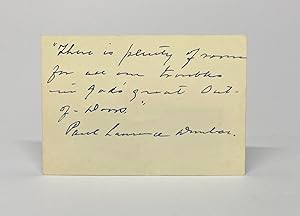 "There is plenty of room
for all our troubles
in God's great Out-
of-Doors."
Paul Laurence Dunbar.